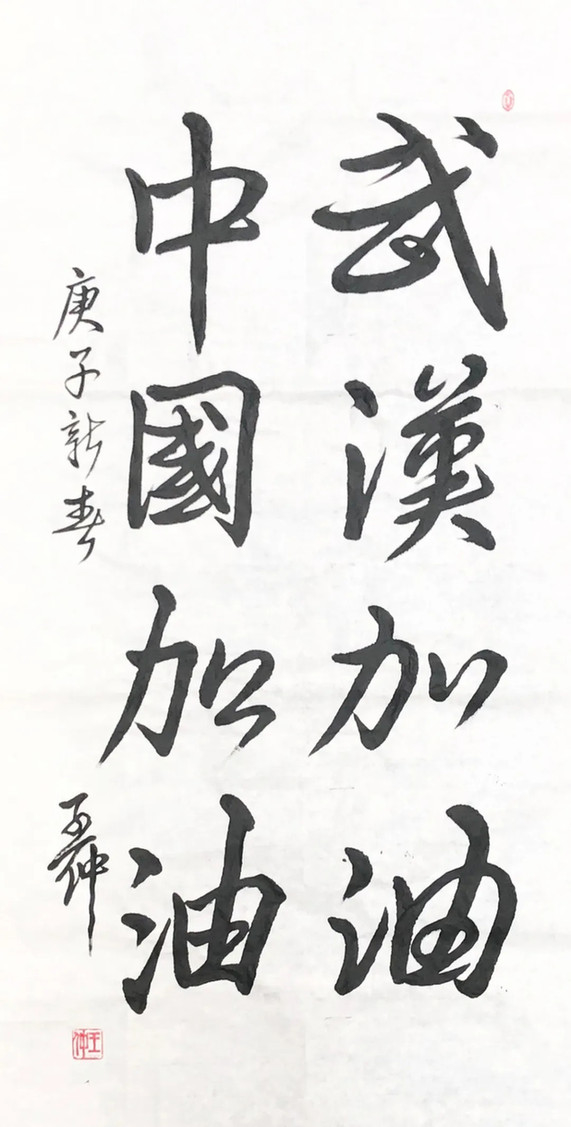 武漢加油
中國加油
庚子新春